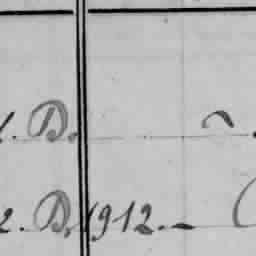 1. D.
2. D. 1912.-